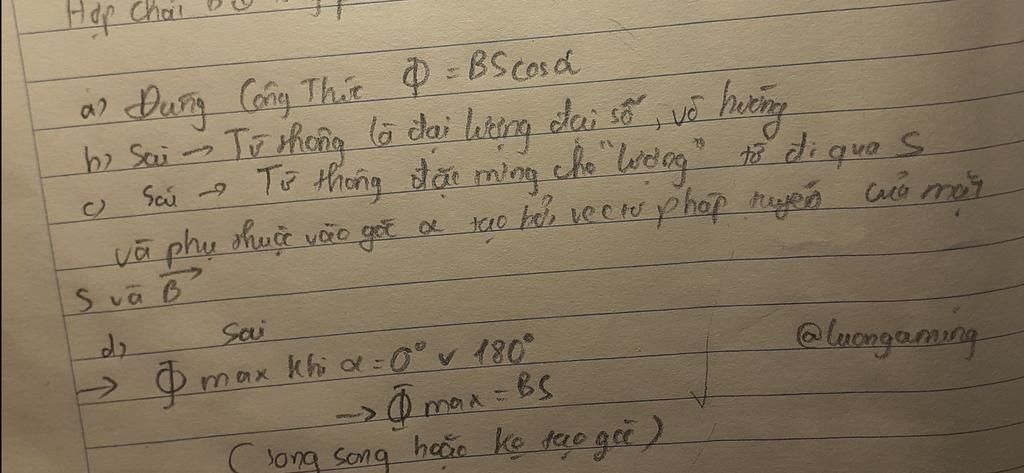 Hợp chất
a) Đúng Công Thức Φ = BScosα
b) Sai → Từ thông là đại lượng đại số, vô hướng
c) Sai → Từ thông đặc ming cho "lượng" từ đi qua S
và phụ thuộc vào góc α tạo bởi vectơ pháp tuyến của mặt
S và B→
d) Sai
→ Φ max khi α = 0° v 180°
→ Φ max = BS
(song song hoặc ko tạo góc)
@luongaming